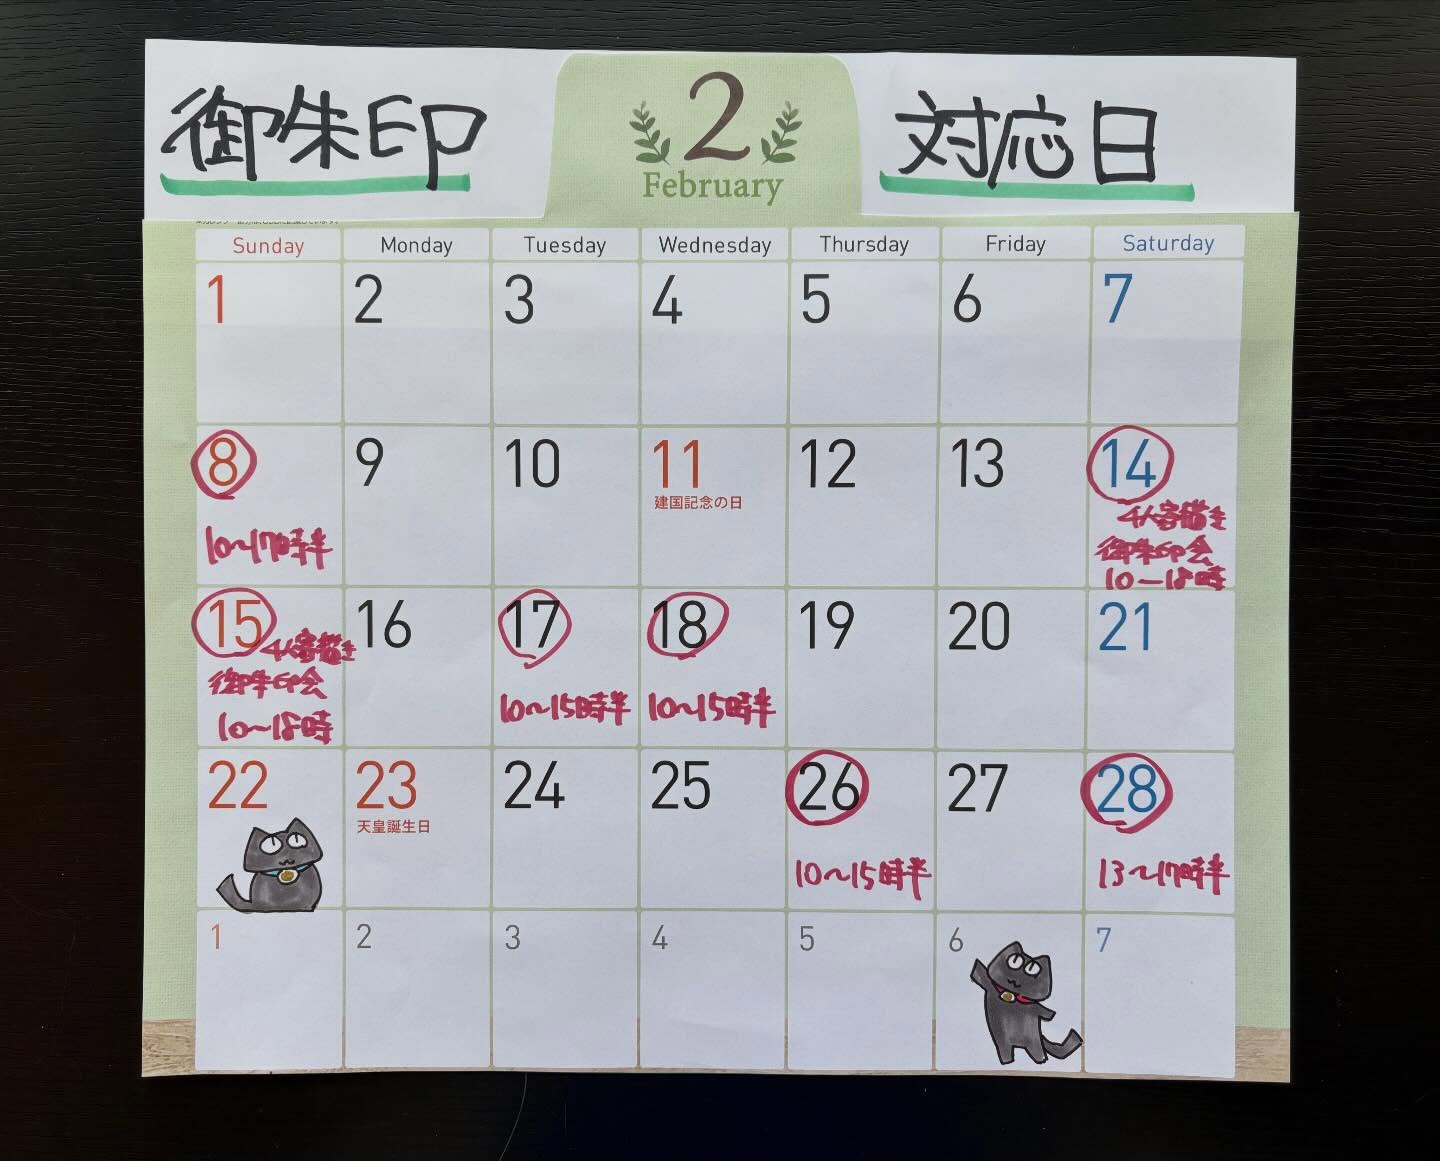 御朱印
2
February
対応日
Sunday Monday Tuesday Wednesday Thursday Friday Saturday
1 2 3 4 5 6 7
8 9 10 11 12 13 14
建国記念の日
10~17時半
4人寄描き
御朱印会
10~18時
15 16 17 18 19 20 21
4人寄描き
御朱印会
10~18時
10~15時半
10~15時半
22 23 24 25 26 27 28
天皇誕生日
10~15時半
13~17時半
1 2 3 4 5 6 7